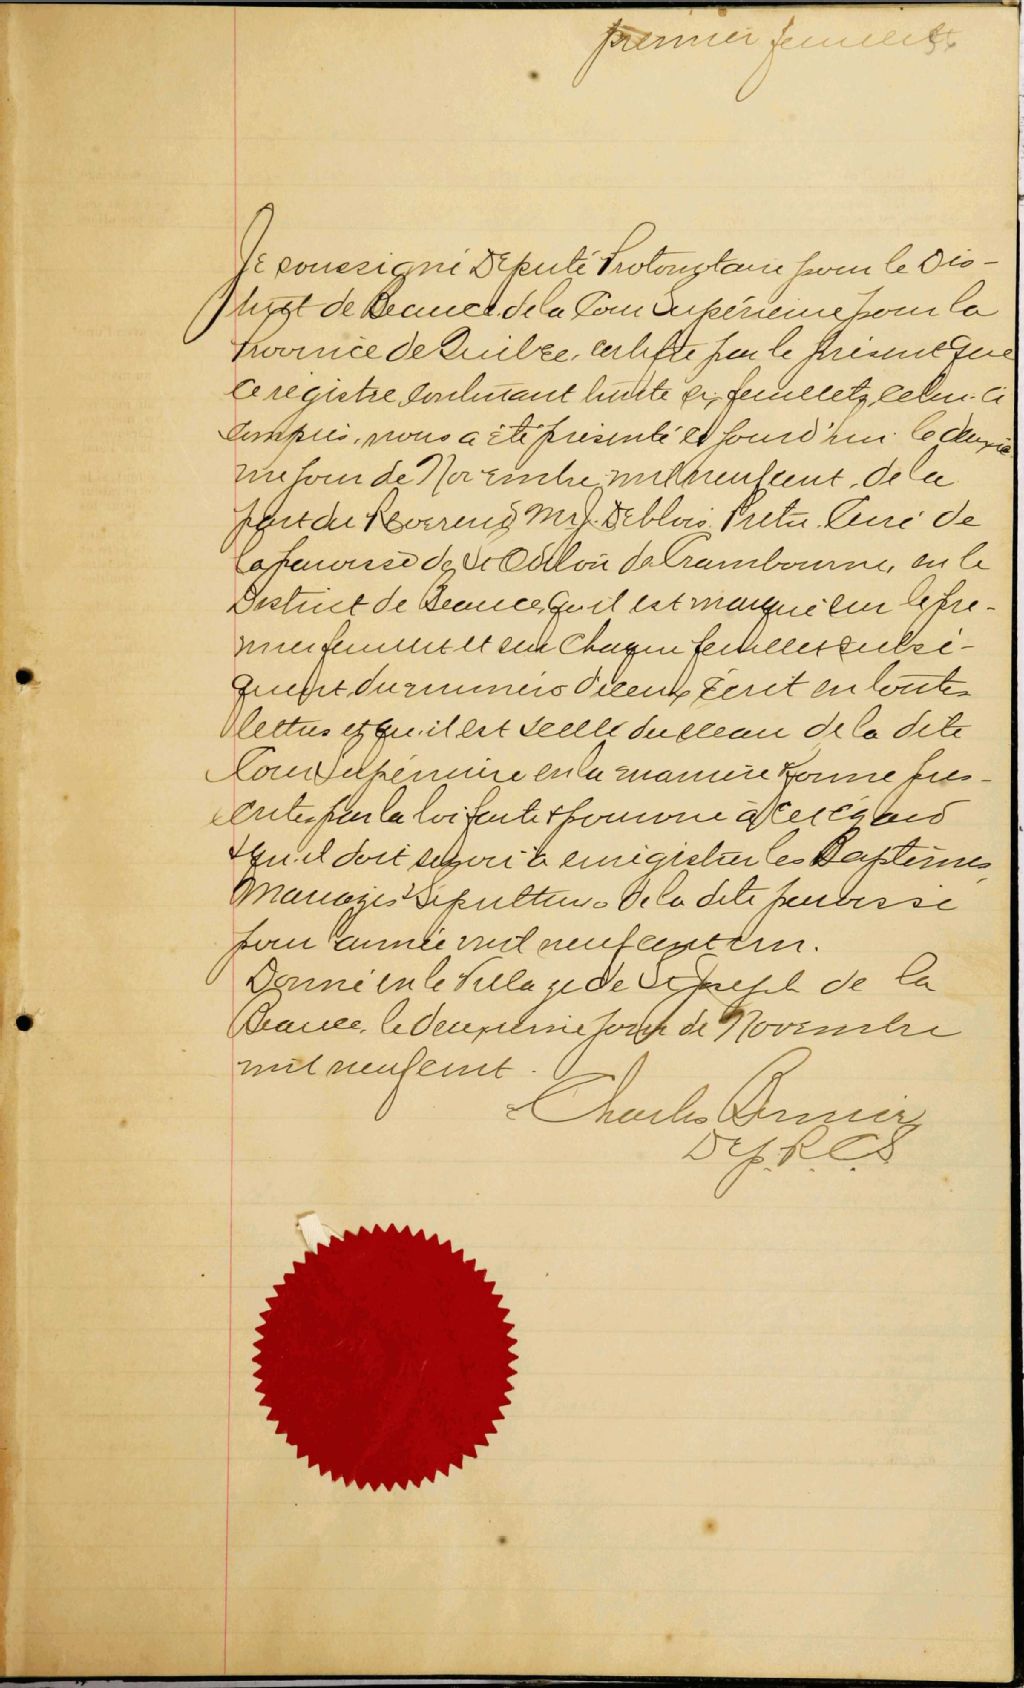 premier feuillet
Je soussigné Député Protonotaire pour le Dis-
trict de Beauce, de la Cour Supérieure pour la
Province de Québec, certifie par le présent que
ce registre, contenant trente six feuillets, celui-ci
compris, nous a été présenté ce jourd'hui le deuxiè
me jour de Novembre mil neuf cent, de la
part du Révérend Mr J. Deblois, Prêtre, Curé de
la paroisse de St Odilon de Crambourne, en le
District de Beauce, qu'il est marqué sur le pre-
mier feuillet et sur chaque feuillet subsé-
quent, du numéro d'iceux, écrit en toutes
lettres et qu'il est scellé du sceau de la dite
Cour Supérieure en la manière & forme pres-
crites par la loi faite & pourvue à cet égard
& qu'il doit servir à enregistrer les Baptêmes,
Mariages & Sépultures de la dite paroisse
pour année mil neuf cent un.
Donné en le Village de St Joseph de la
Beauce, le deuxième jour de Novembre
mil neuf cent.
Charles Bernier
Dep. P. C. S.